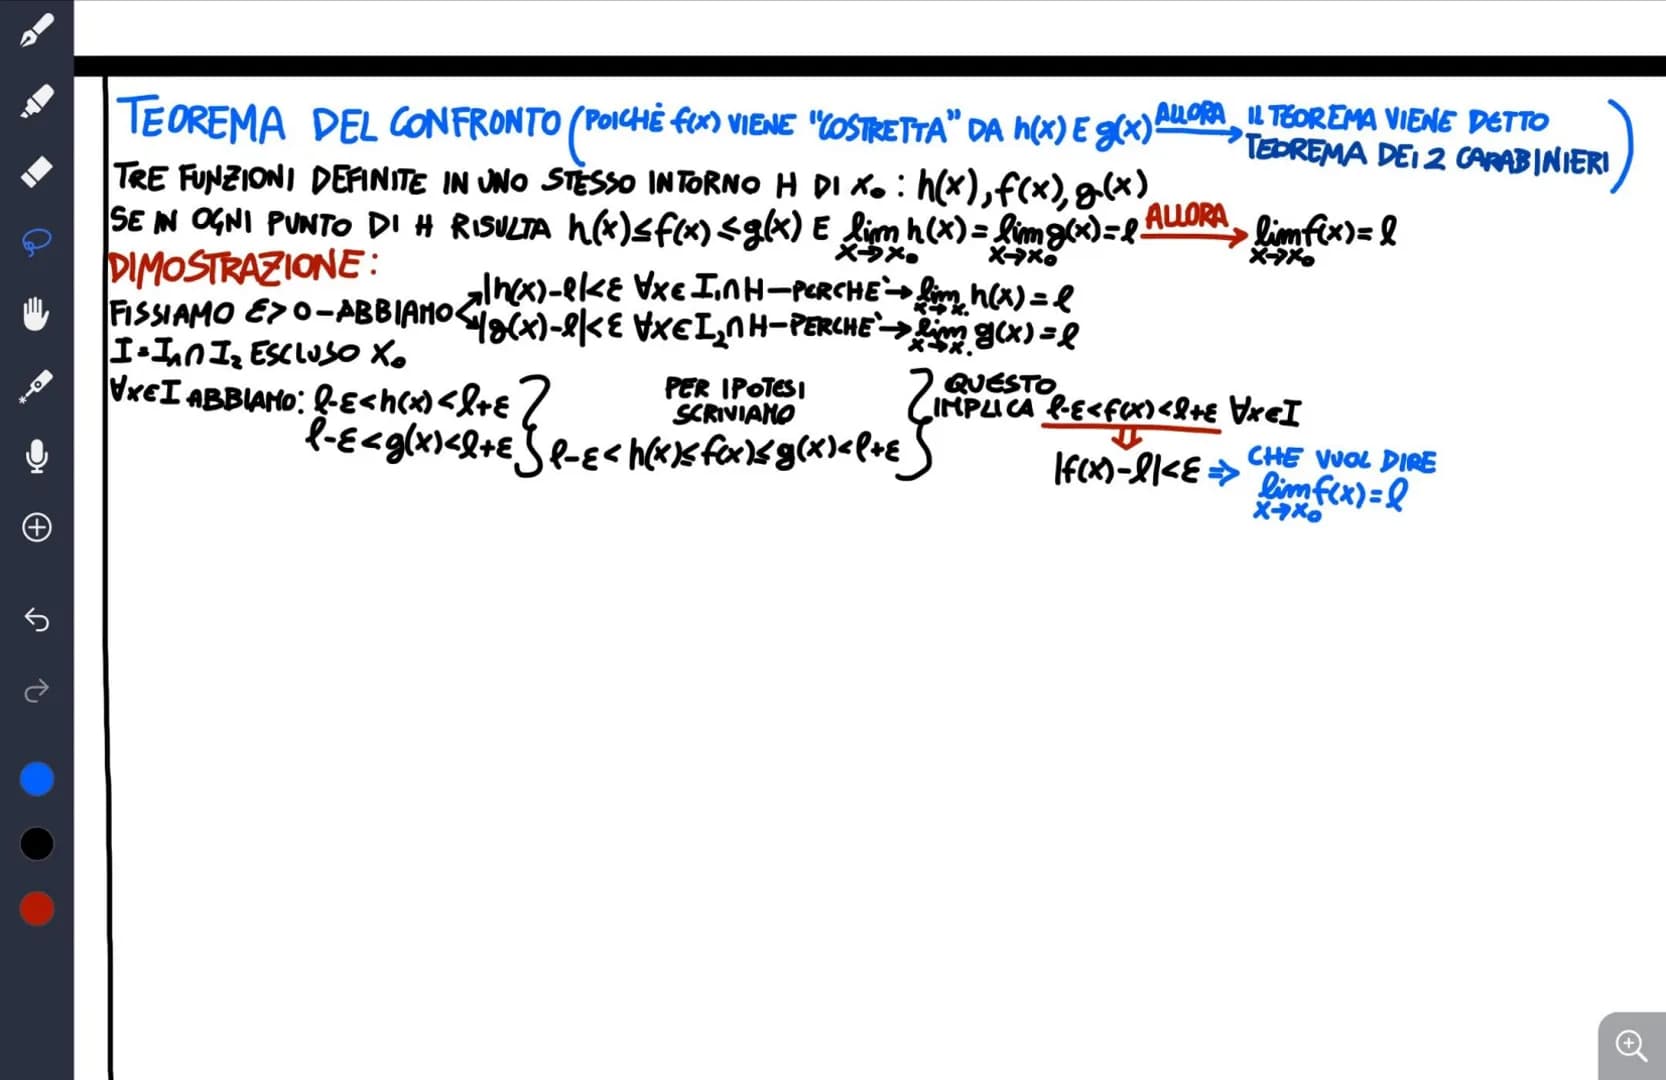 TEOREMA DEL CONFRONTO (POICHÈ f(x) VIENE "COSTRETTA" DA h(x) E g(x) ALLORA → IL TEOREMA VIENE DETTO
TEOREMA DEI 2 CARABINIERI)
TRE FUNZIONI DEFINITE IN UNO STESSO INTORNO H DI x₀ : h(x), f(x), g(x)
SE IN OGNI PUNTO DI H RISULTA h(x)≤f(x)≤g(x) E lim h(x) = lim g(x) = ℓ ALLORA → lim f(x) = ℓ
x→x₀ x→x₀ x→x₀
DIMOSTRAZIONE:
FISSIAMO ε>0 - ABBIAMO
|h(x)-ℓ|<ε ∀x∈I₁∩H - PERCHE' → lim h(x) = ℓ
x→x₀
|g(x)-ℓ|<ε ∀x∈I₂∩H - PERCHE' → lim g(x) = ℓ
x→x₀
I = I₁∩I₂ ESCLUSO x₀
∀x∈I ABBIAMO: ℓ-ε<h(x)<ℓ+ε
ℓ-ε<g(x)<ℓ+ε
PER IPOTESI
SCRIVIAMO
ℓ-ε<h(x)≤f(x)≤g(x)<ℓ+ε
QUESTO
IMPLICA ℓ-ε<f(x)<ℓ+ε ∀x∈I
⇓
|f(x)-ℓ|<ε ⇒ CHE VUOL DIRE
lim f(x) = ℓ
x→x₀